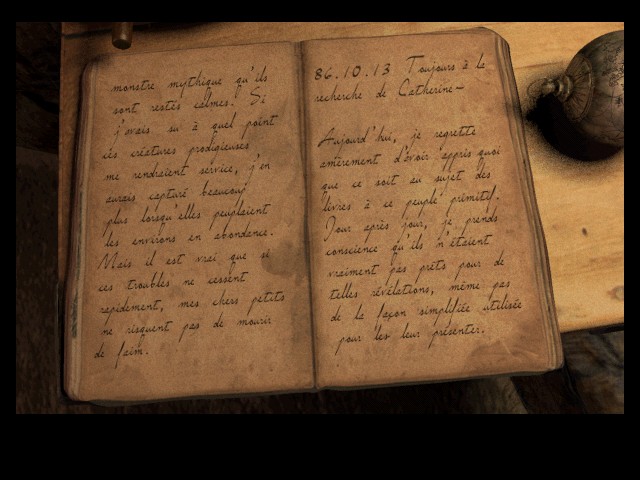 monstre mythique qu'ils
sont restés calmes. Si
j'avais su à quel point
ces créatures prodigieuses
me rendraient service, j'en
aurais capturé beaucoup
plus lorsqu'elles peuplaient
les environs en abondance.
Mais il est vrai que si
ces troubles ne cessent
rapidement, mes chers petits
ne risquent pas de mourir
de faim.
86.10.13 Toujours à la
recherche de Catherine~
Aujourd'hui, je regrette
amèrement d'avoir appris quoi
que ce soit au sujet des
livres à ce peuple primitif.
Jour après jour, je prends
conscience qu'ils n'étaient
vraiment pas prêts pour de
telles révélations, même pas
de la façon simplifiée utilisée
pour les leur présenter.